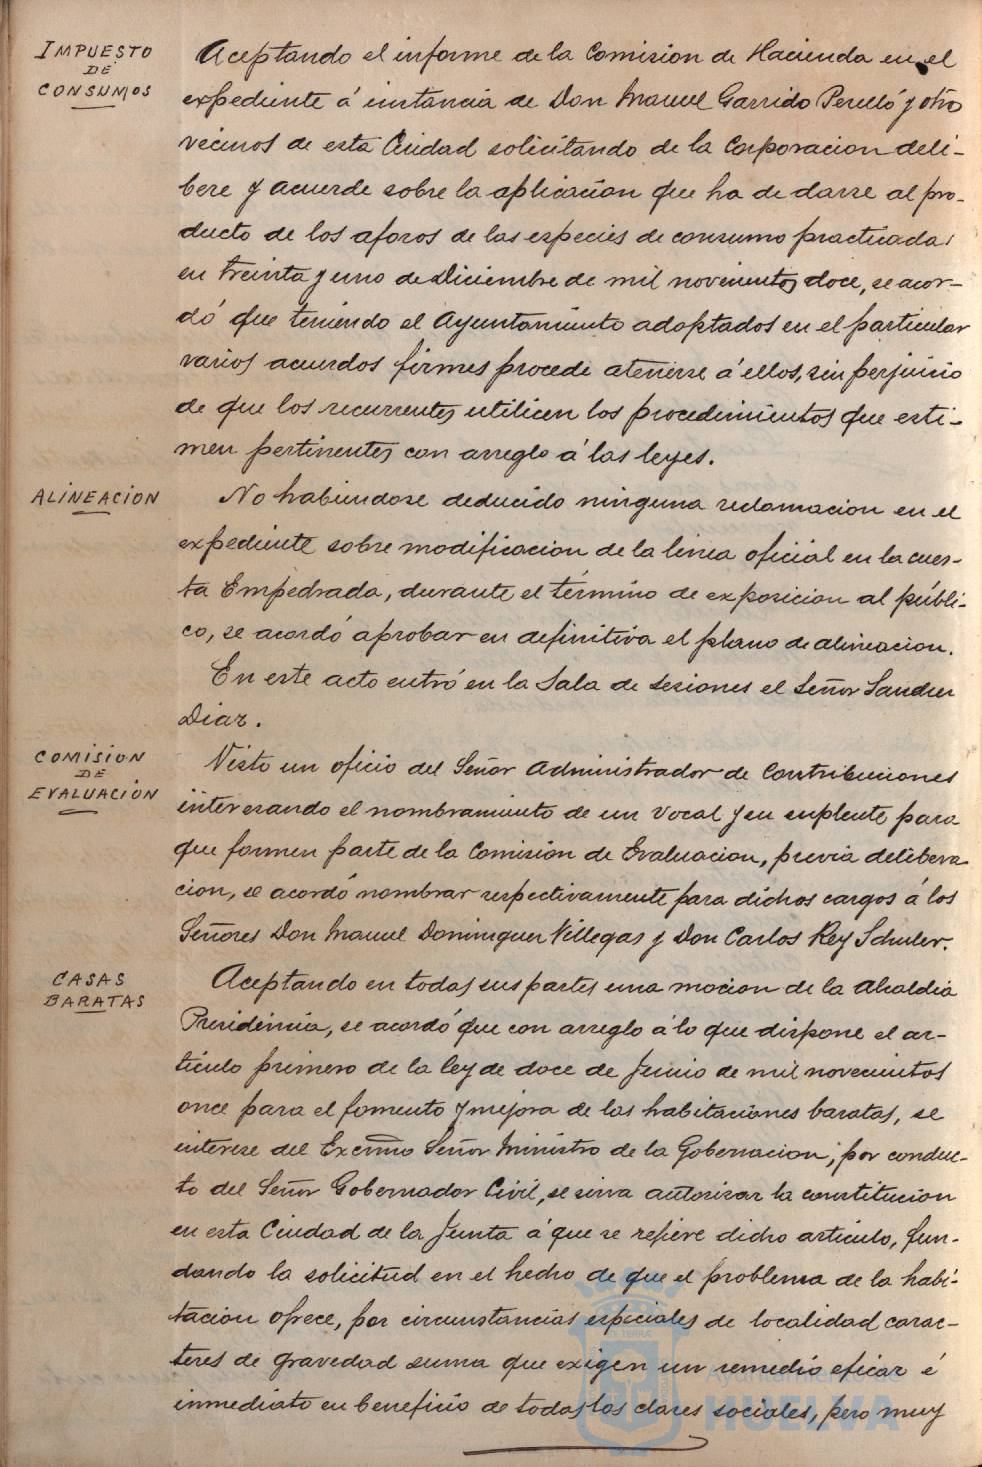 IMPUESTO
DE
CONSUMOS
Aceptando el informe de la Comision de Hacienda en el
expediente á instancia de Don Manuel Garrido Perelló y otros
vecinos de esta Ciudad solicitando de la Corporacion deli-
bere y acuerde sobre la aplicacion que ha de darse al pro-
ducto de los aforos de las especies de consumo practicadas
en treinta y uno de Diciembre de mil novecientos doce, se acor-
dó que teniendo el Ayuntamiento adoptados en el particular
varios acuerdos firmes procede atenerse á ellos, sin perjuicio
de que los recurrentes utilicen los procedimientos que esti-
men pertinentes con arreglo á las leyes.
ALINEACION
No habiendose deducido ninguna reclamacion en el
expediente sobre modificacion de la linea oficial en la cues-
ta Empedrada, durante el término de exposicion al públi-
co, se acordó aprobar en definitiva el plano de alineacion.
En este acto entró en la Sala de sesiones el Señor Sanchez
Diaz.
COMISION
DE
EVALUACION
Visto un oficio del Señor Administrador de Contribuciones
interesando el nombramiento de un vocal y su suplente para
que formen parte de la Comision de Evaluacion, previa delibera
cion, se acordó nombrar respectivamente para dichos cargos á los
Señores Don Manuel Dominguez Villegas y Don Carlos Rey Schuler.
CASAS
BARATAS
Aceptando en todas sus partes una mocion de la Alcaldia
Presidencia, se acordó que con arreglo á lo que dispone el ar-
ticulo primero de la ley de doce de Junio de mil novecientos
once para el fomento y mejora de las habitaciones baratas, se
interese del Excmo Señor Ministro de la Gobernacion, por conduc-
to del Señor Gobernador Civil, se sirva autorizar la constitucion
en esta Ciudad de la Junta á que se refiere dicho articulo, fun-
dando la solicitud en el hecho de que el problema de la habi-
tacion ofrece, por circunstancias especiales de localidad carac-
teres de gravedad suma que exigen un remedio eficaz é
inmediato en beneficio de todas las clases sociales, pero muy
Ayuntamiento de
HUELVA